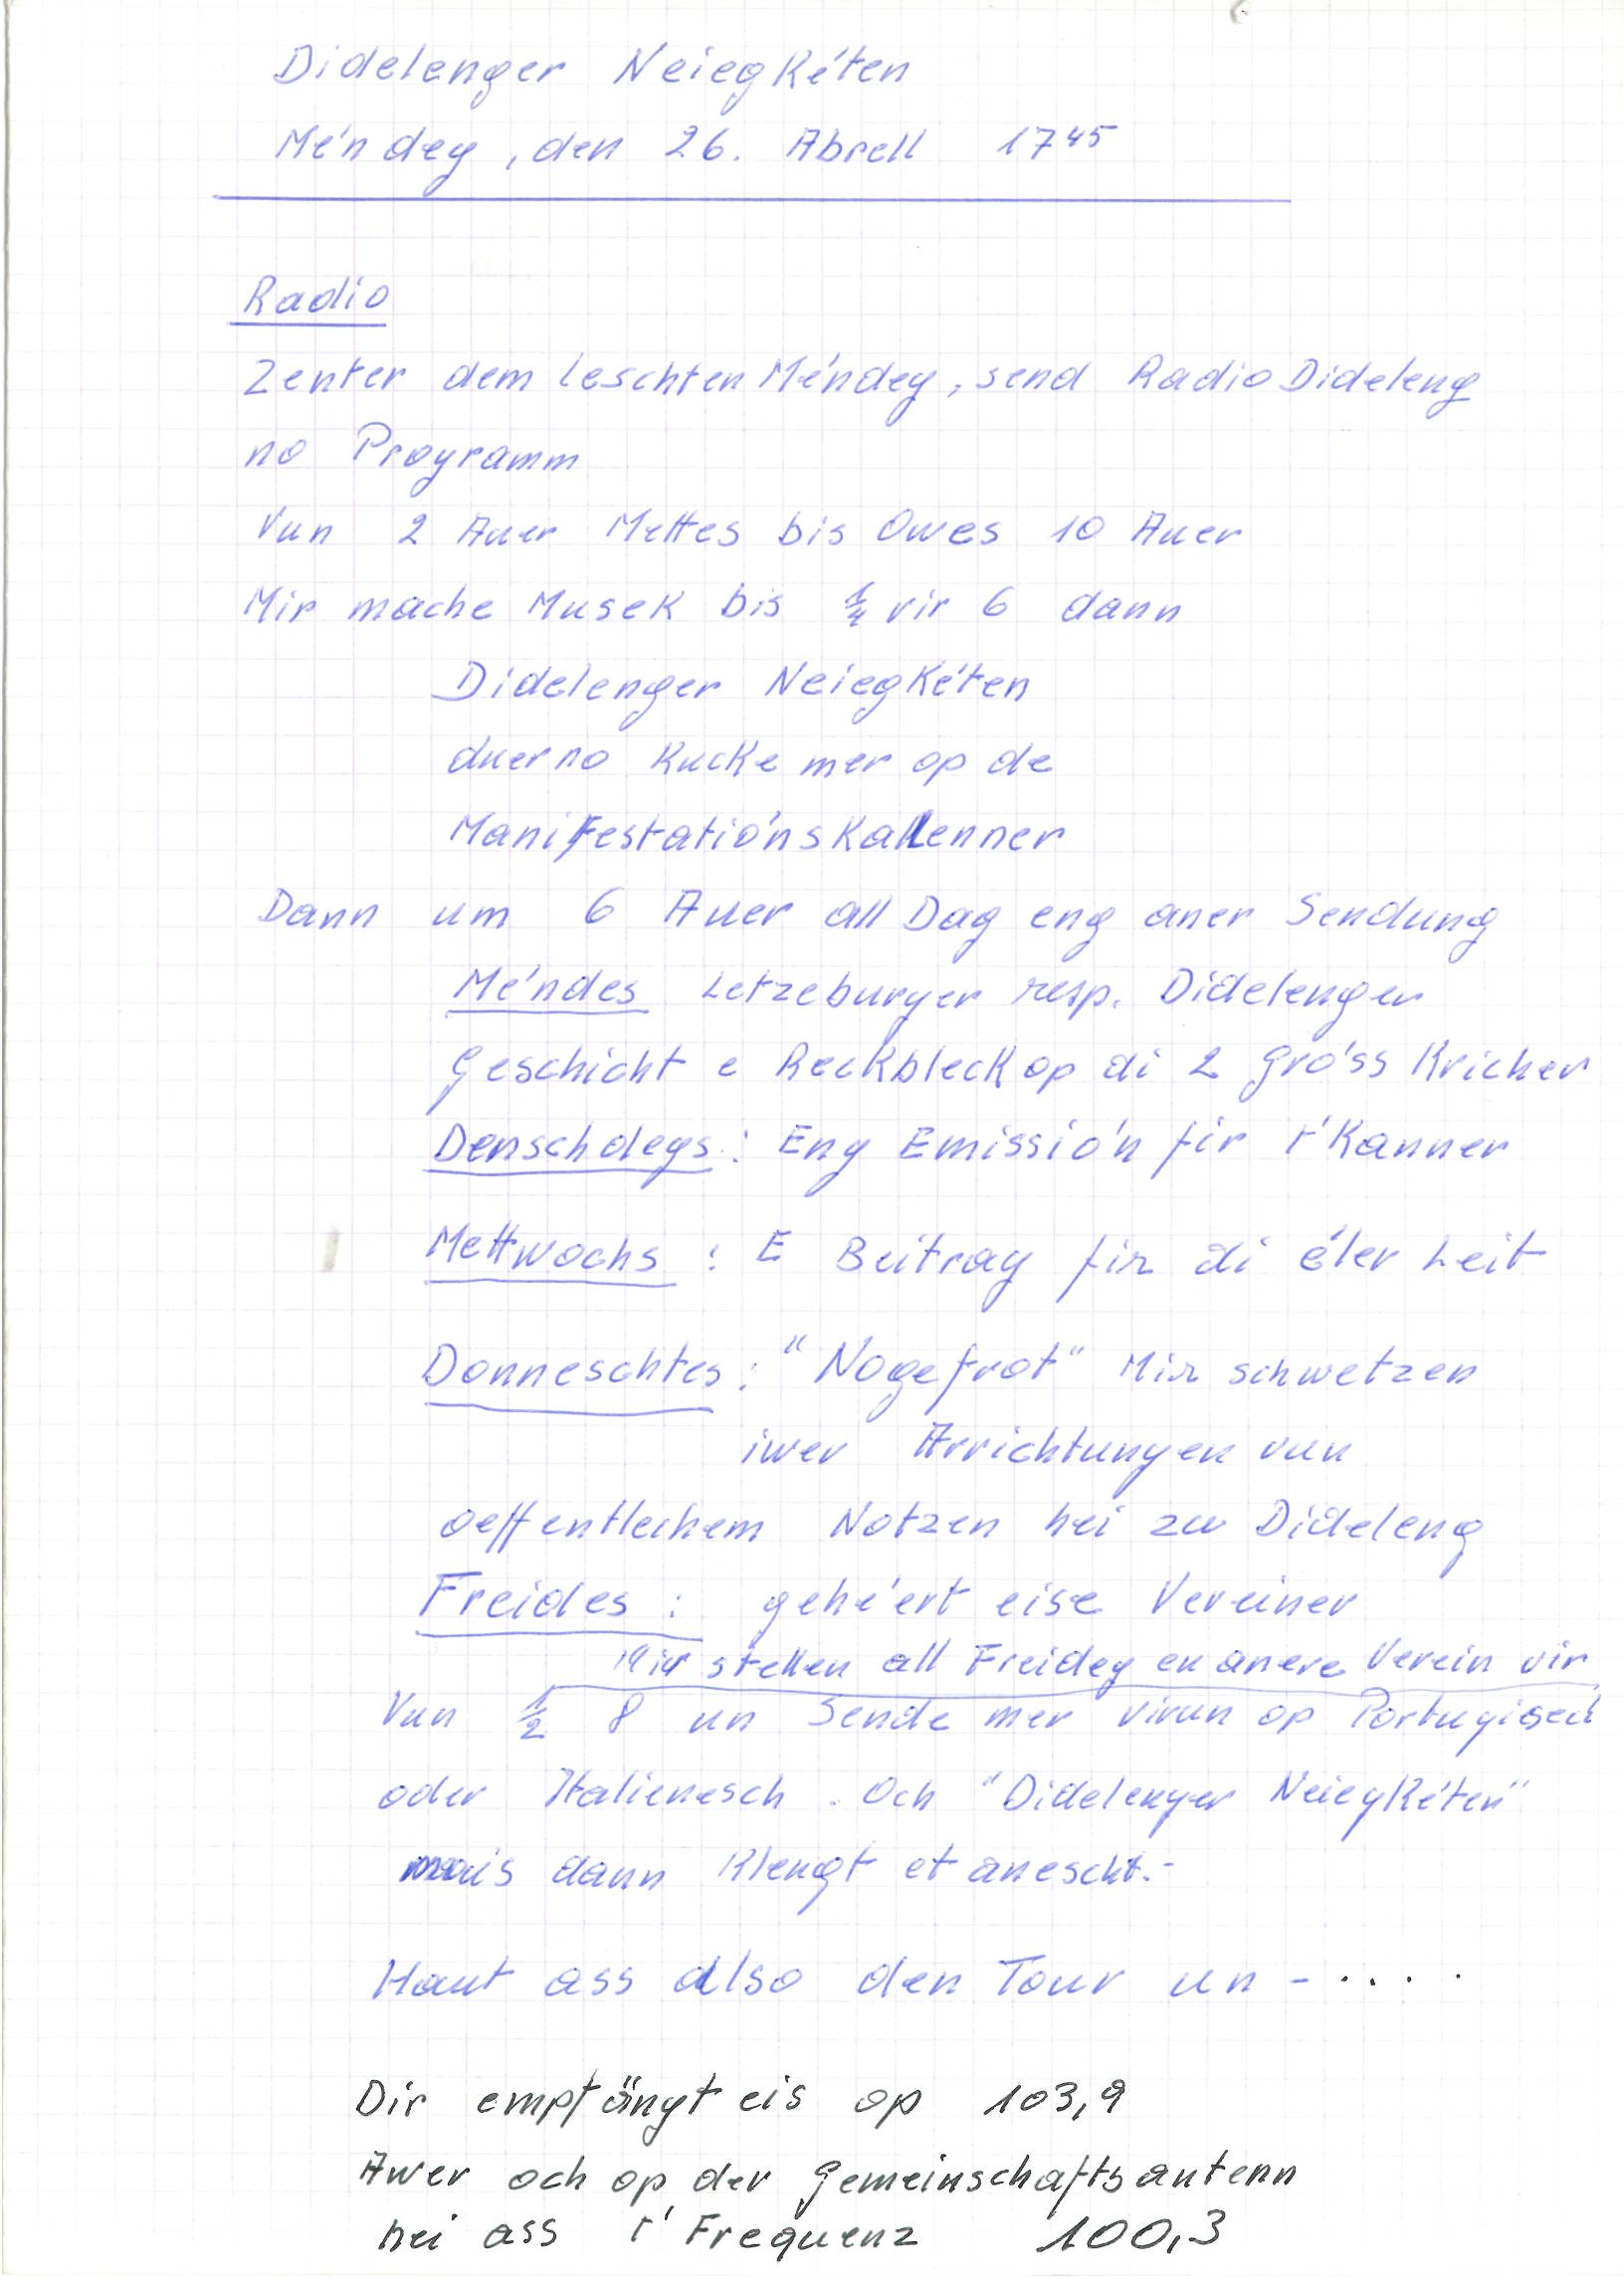 Didelenger Neiegkéten
Méndeg, den 26. Abrell 17⁴⁵
Radio
Zenter dem leschten Méndeg, send Radio Dideleng
no Programm
Vun 2 Auer Mettes bis Owes 10 Auer
Mir mache Musek bis ¼ vir 6 dann
Didelenger Neiegkéten
duerno kucke mer op de
Manifestatiónskalenner
Dann um 6 Auer all Dag eng aner Sendung
Méndes Letzeburger resp. Didelenger
Geschicht e Reckbleck op di 2 gróss Kricher
Denschdegs: Eng Emissión fir t'Kanner
Mettwochs: E Beitrag fir di éler Leit
Donneschtes: "Nogefrot" Mir schwetzen
iwer Arrichtungen vun
oeffentlechem Notzen hei zu Dideleng
Freides: gehéert eise Vereiner
Mir stellen all Freideg en anere Verein vir
Vun ½ 8 un Sende mer virun op Portugisech
oder Italienesch. Och "Didelenger Neiegkéten"
mais dann klengt et anescht.-
Haut ass also den Tour un - ....
Dir empfängt eis op 103,9
Awer och op der Gemeinschaftsantenn
hei ass t'Frequenz 100,3